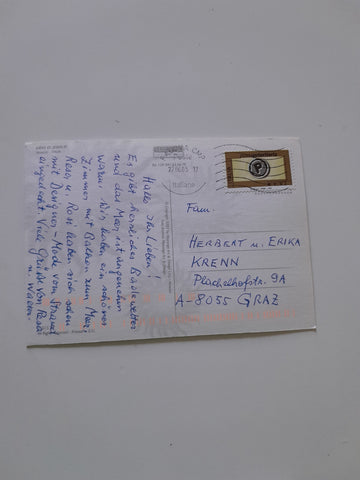 Hallo ihr Lieben!
Es gibt herrliches Badewetter
und das Meer ist angenehm
warm. Wir haben ein schönes
Zimmer mit Balkon zum Meer
Resa u. Rosi haben sich schon
mit Designer-Mode vom Strand
eingedeckt. Viele Grüße von
Italiane
Fam.
HERBERT u. ERIKA
KRENN
Plachelhofstr. 9A
A-8055 GRAZ